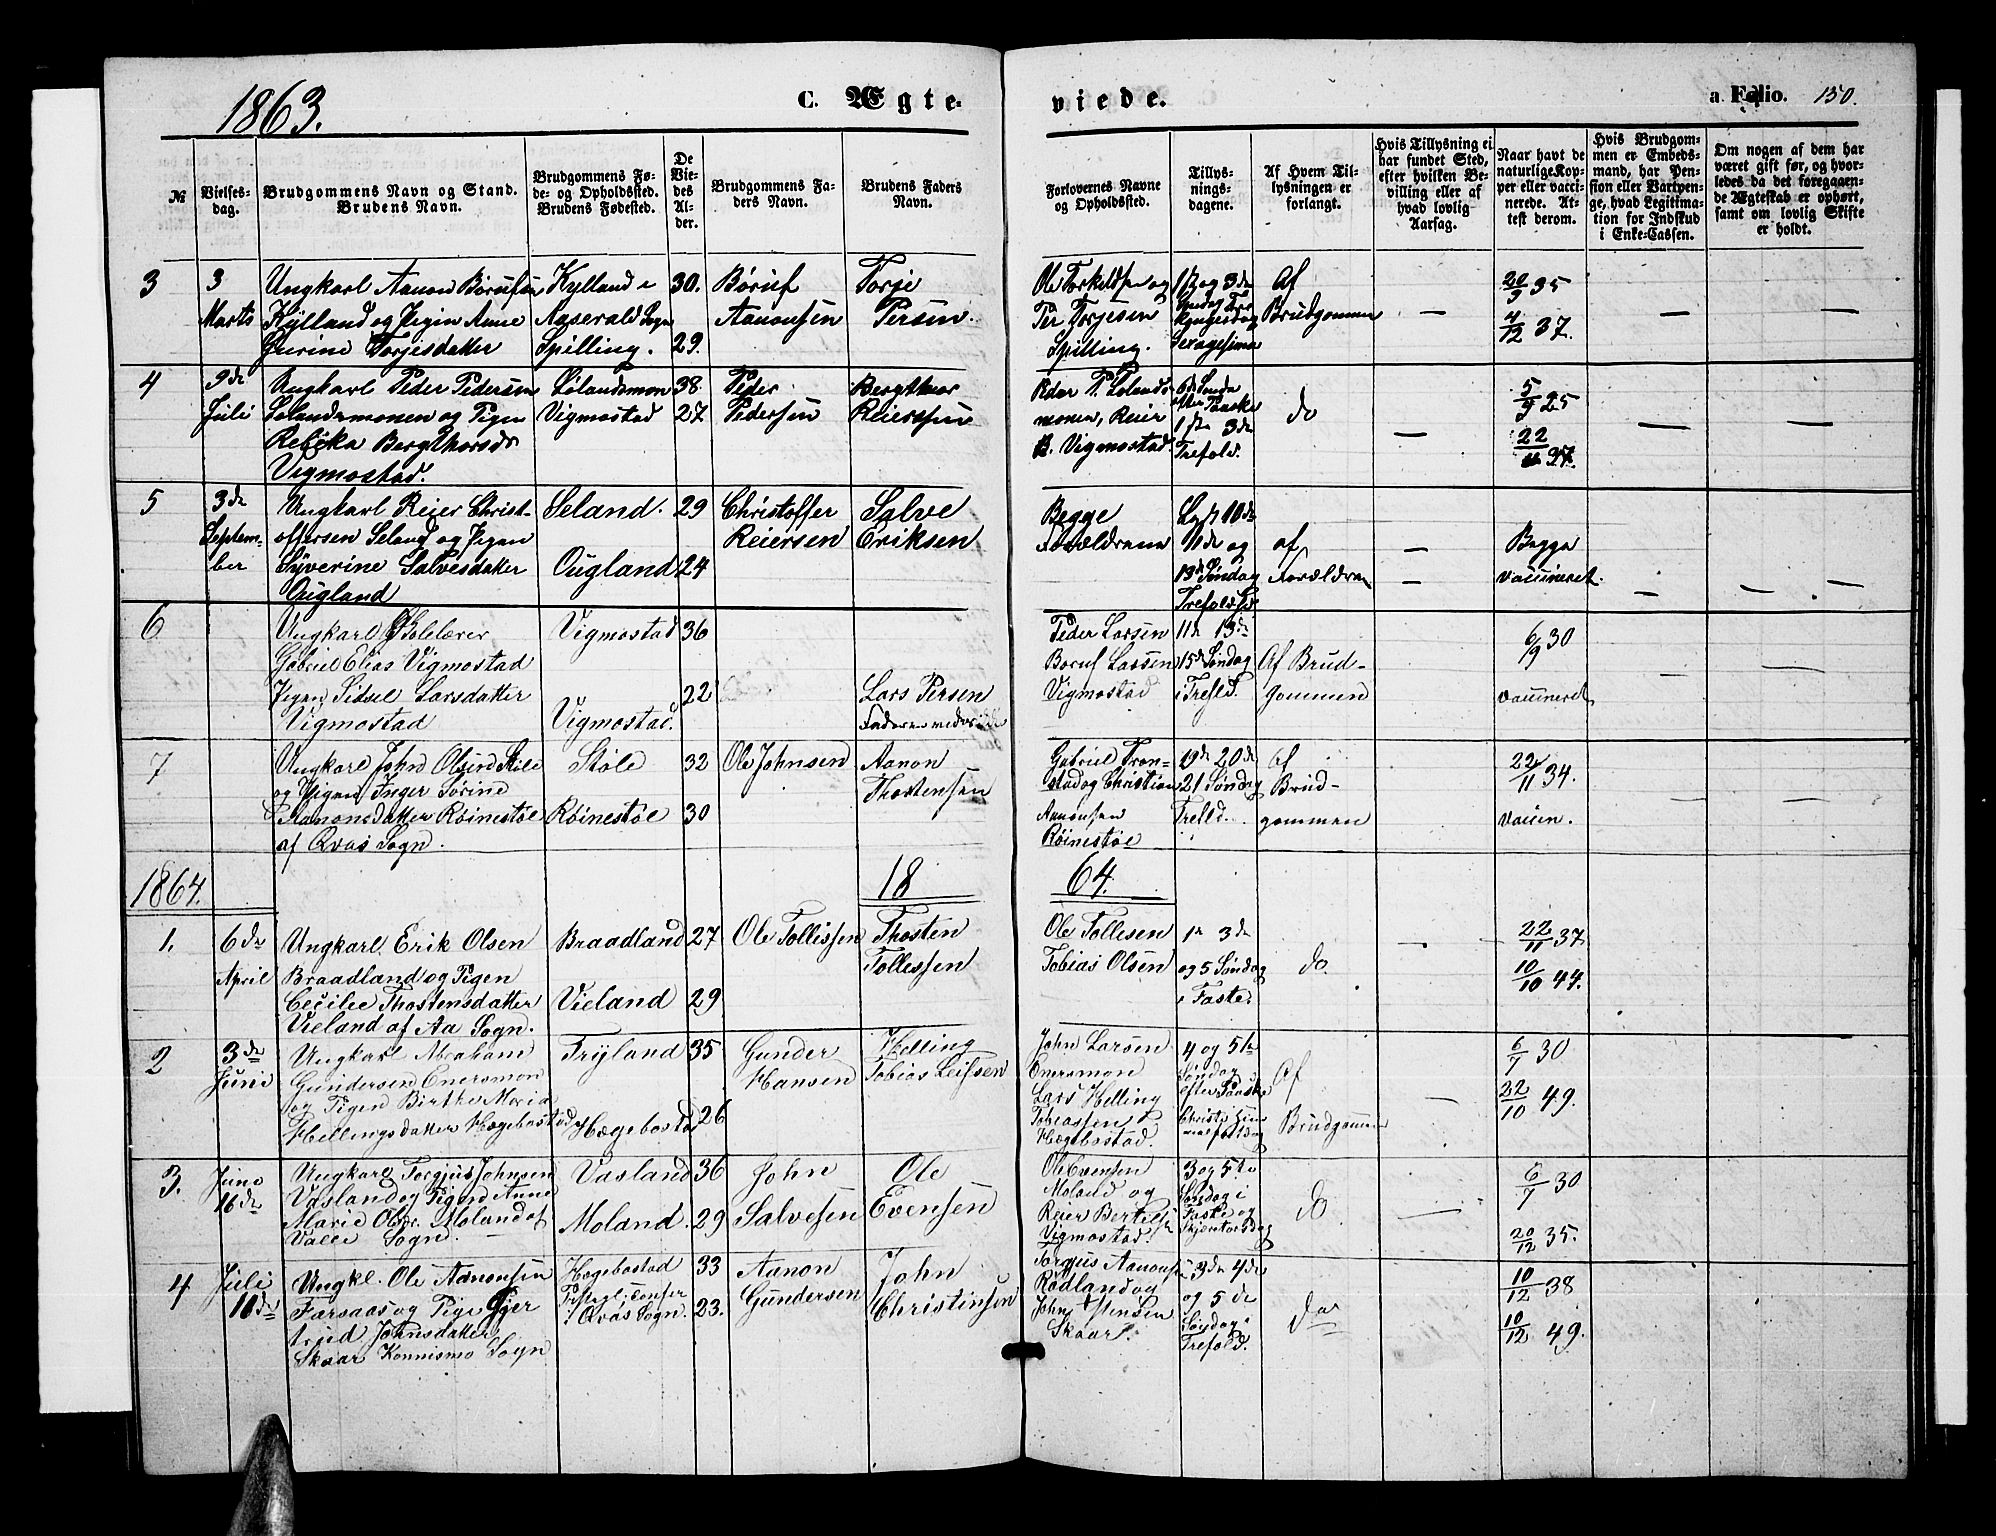 1863.
C. Ægte-
viede.
a. Folio. 150.
№
Vielses-
dag.
Brudgommens Navn og Stand.
Brudens Navn.
Brudgommens Fø-
de- og Opholdssted.
Brudens Fødested.
De
Vie-
des
Al-
der.
Brudgommens Fa-
ders Navn.
Brudens Faders
Navn.
Forlovernes Navne
og Opholdssted.
Tillys-
nings-
dagene.
Af Hvem Til-
lysningen er
forlangt.
Hvis Tillysning ei
har fundet Sted,
efter hvilken Be-
villing eller af
hvad lovlig
Aarsag.
Naar havt de
naturlige Kop-
per eller vacci-
nerede. At-
test derom.
Hvis Brudgom-
men er Embeds-
mand, har Pen-
sion eller Vartpen-
ge, hvad Legitima-
tion for Indskud
i Enke-Cassen.
Om nogen af dem har
været gift før, og hvor-
ledes da det foregaaen-
de Ægteskab er ophørt,
samt om lovlig Skifte
er holdt.
3
3
Marts
Ungkarl Aanon Børufsen
Kylland og Pigen Anne
Jurine Torjesdatter
Kylland i
Aaserald Sogn
Spilling.
30.
29.
Børuf
Aanonsen
Torje
Persen.
Ole Torkeldsen og
Per Torjesen
Spilling.
Af
Brudgommen
20/9 35
4/12 37.
4
9de
Juli
Ungkarl Peder Pedersen
Lølandsmonen og Pigen
Rebekka Bergthorsdr
Vigmostad.
Lølandsmon
Vigmostad
38
27
Peder
Pedersen
Bergthor
Reiersen
Peder P. Lølands-
monen, Reier
B. Vigmostad.
6te Sønda
efter Paaske
1ste 3de
Trefold.
do
5/9 25
22/11 37.
5
3de
Septem-
ber
Ungkarl Reier Christ-
offersen Seland og Pigen
Syverine Salvesdatter
Ougland
Seland.
Ougland
29
24
Christoffer
Reiersen
Salve
Eriksen
Begge
Forældrene
Lyst 10de
11de og
13de Søndag
Trefoldsf.
af
Forældren
Begge
vaccineret.
6
Ungkarl Skolelærer
Gabriel Elias Vigmostad
Pigen Sidsel Larsdatter
Vigmostad
Vigmostad
Vigmostad.
36
22
Lars Persen
Peder Larsen
Boruf Larsen
Vigmostad
11de 13de
15de Søndag
i Trefld.
Af Brud-
gommen
6/9 30
vaccineret
7
Ungkarl John Olsen Støle
og Pigen Inger Sørine
Aanonsdatter Røinestøe
af Qvås Sogn.
Støle
Røinestøe
32
30
Ole Johnsen
Aanon
Thostensen
Gabriel Tron-
stad og Christian
Aanonsen
Røinestøe
19de 20de
21 Søndag
Trefld.
Af
Brud-
gommen
22/11 34.
vaccin.
1864.
18
64.
1.
6de
April
Ungkarl Erik Olsen
Braadland og Pigen
Cecilie Thostensdatter
Vieland af Aa Sogn.
Braadland
Vieland
27
29
Ole Tollissen
Thosten
Tollessen
Ole Tollesen
Tobias Olsen
1ste 3de
og 5 Søndag
i Faste.
do.
22/11 37
10/10 44.
2
3de
Juni
Ungkarl Abraham
Gundersen Enersmon
og Pigen Birthe Maria
Hellingsdatter Hægebostad
Fryland
Hægebostad
35
26
Gunder
Hansen
Helling
Tobias Leifsen
John Larsen
Enersmon
Lars Helling
Tobiassen
Hægebostad.
4 og 5te
Søndag
efter Paaske
Christi Him-
melfartsdag
Af
Brudgommen
6/7 30
22/10 49.
3.
Juni
16de
Ungkarl Torgjus Johnsen
Vasland og Pigen Anne
Marie Olsdr. Moland af
Valle Sogn.
Vasland
Moland.
36
29
John
Salvesen
Ole
Evensen
Ole Evensen
Moland og
Reier Bertels
Vigmostad.
3 og 5te
Søndag i
Faste og
Skjertorsdag
do
6/7 30
20/12 35.
4
Juli
10de
Ungkl. Ole Aanonsen
Farsaas og Pige Gjer
trud Johnsdatter
Skaar Konnismo Sogn
Hægebostad
i Qvås Sogn.
33
23.
Aanon
Gundersen
John
Christinsen
Torgjus Aanonsen
Rødland og
John Stensen
Skaar.
3de 4de
og 5 de
Søndag i
Trefold.
do
10/12 38
10/12 49.